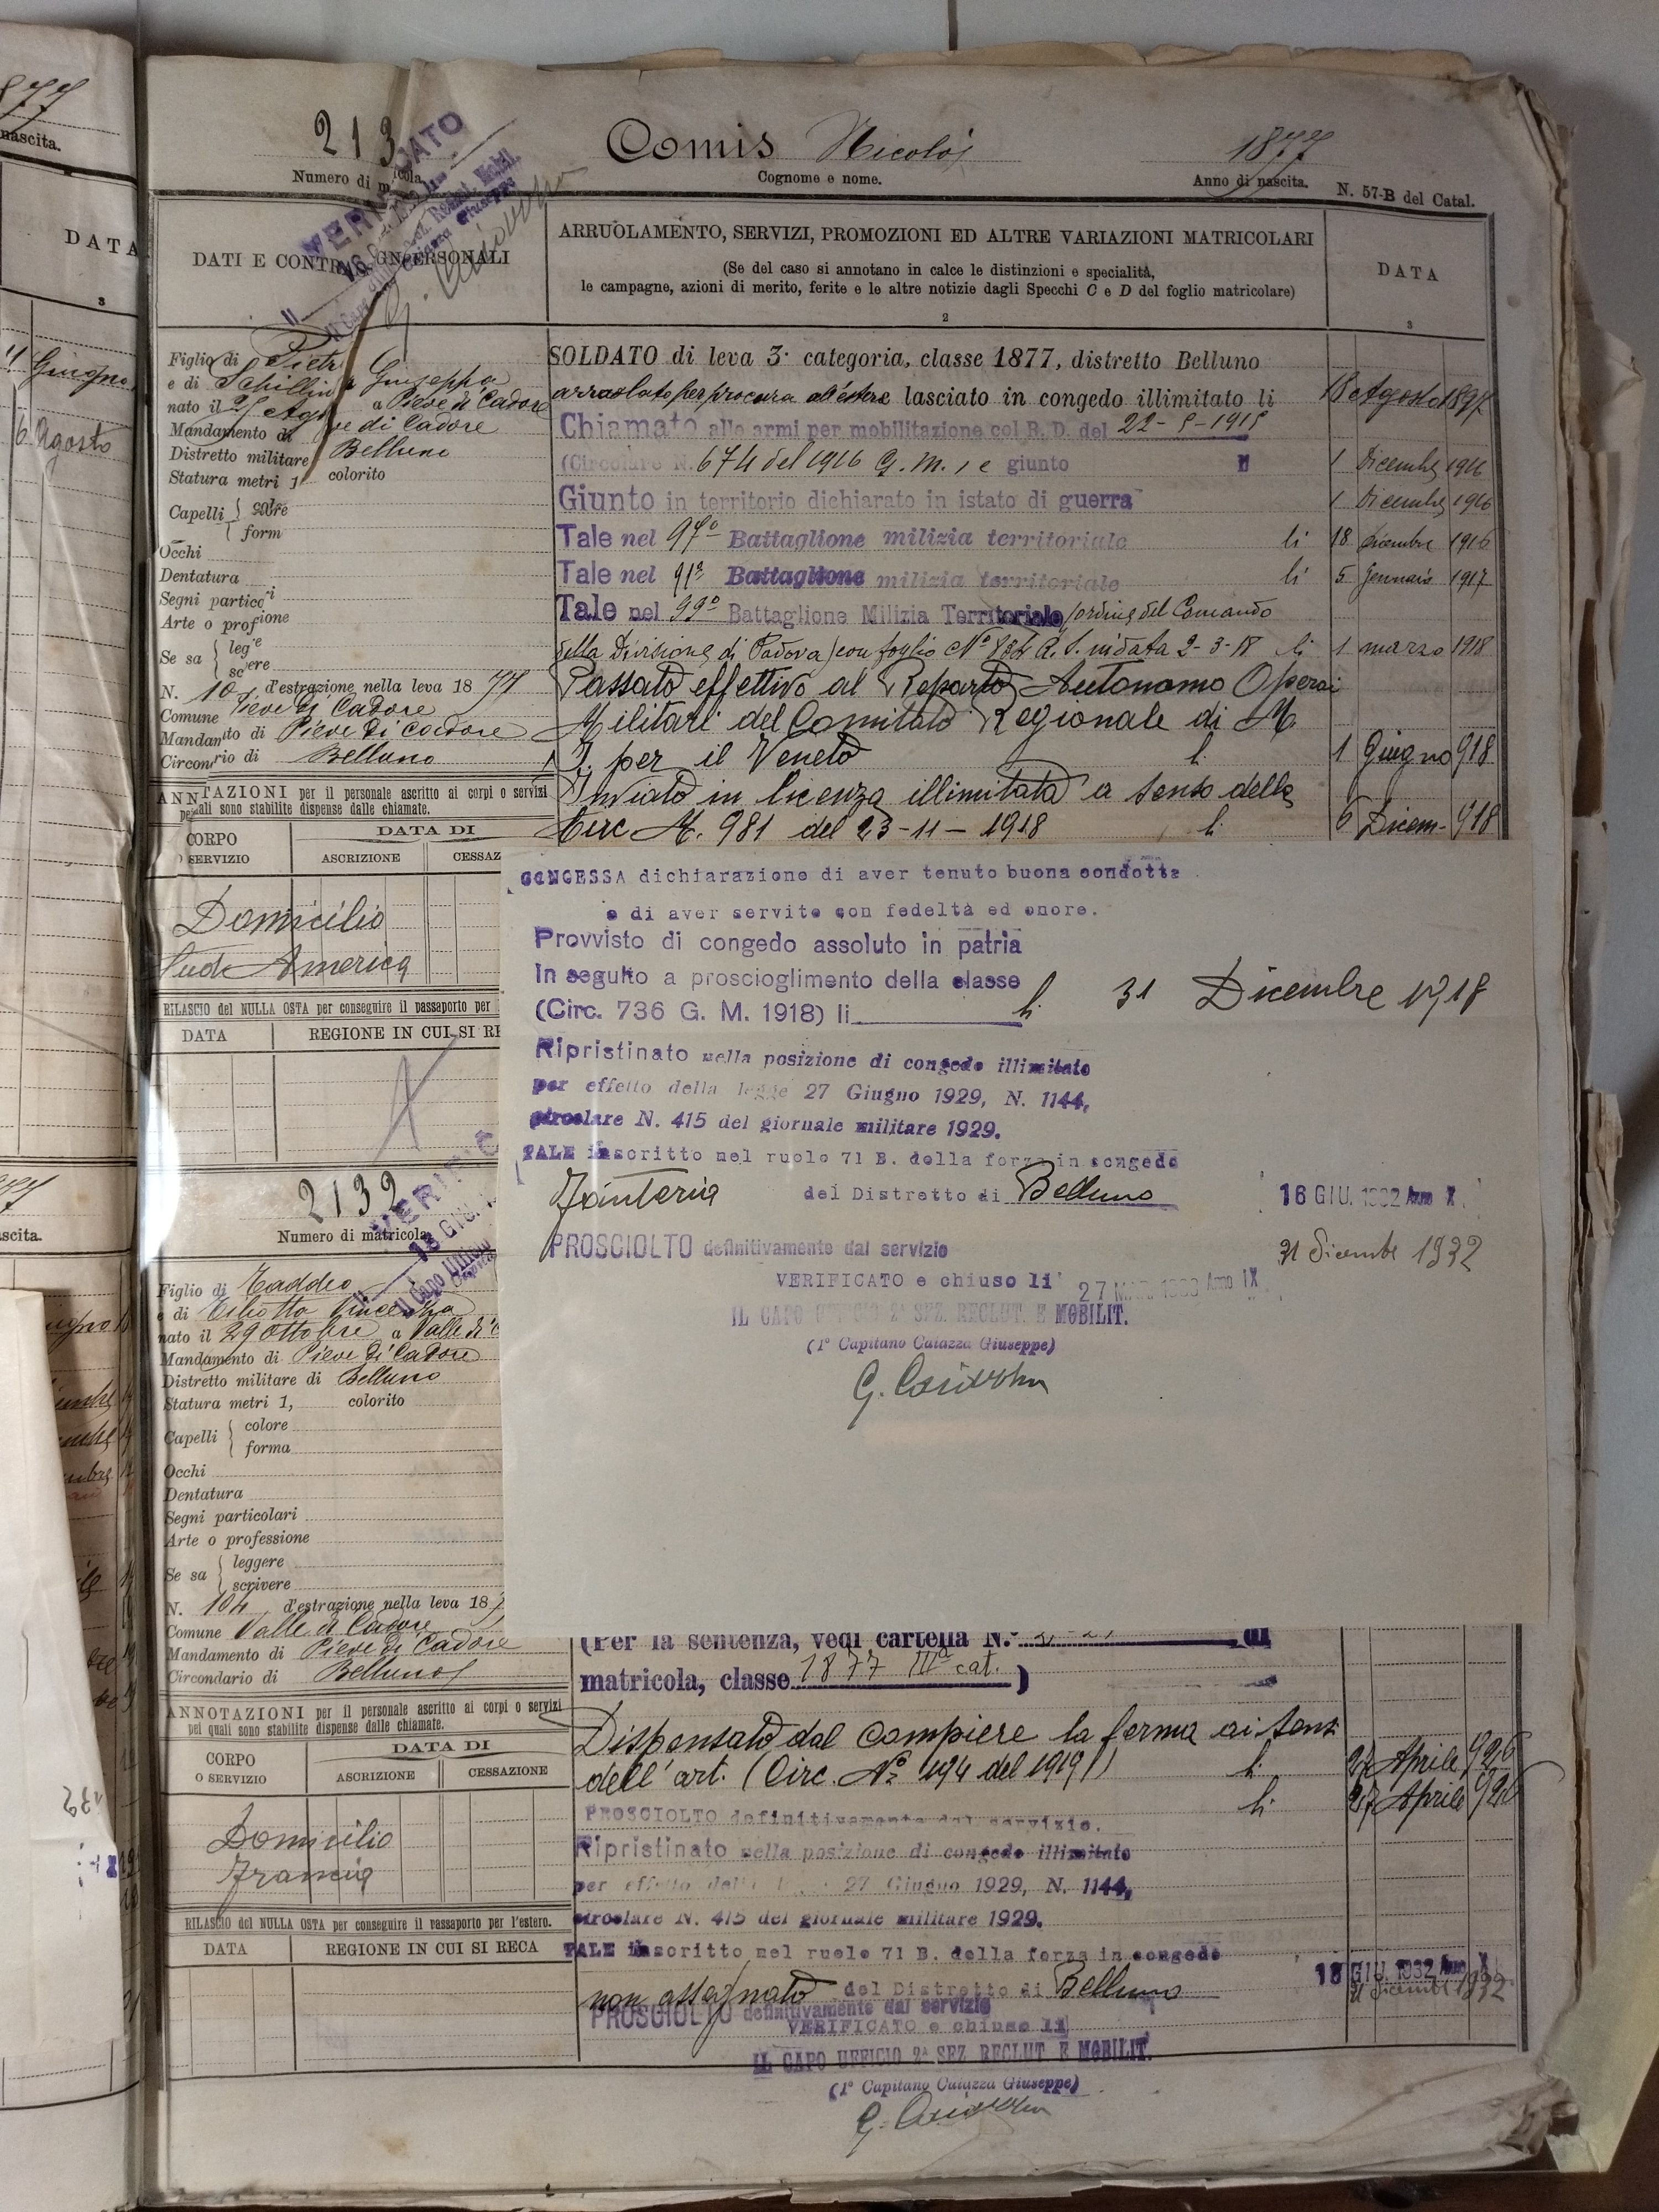 213
Numero di
Comis Nicolò
Cognome e nome.
1877
Anno di nascita.
N. 57-B del Catal.
DATI E CONTR PERSONALI
ARRUOLAMENTO, SERVIZI, PROMOZIONI ED ALTRE VARIAZIONI MATRICOLARI
(Se del caso si annotano in calce le distinzioni e specialità,
le campagne, azioni di merito, ferite e le altre notizie dagli Specchi C e D del foglio matricolare)
2
DATA
3
Figlio di Pietr
e di Schillin Giuseppa
nato il 27 Ag a Pieve di Cadore
Mandamento di ve di Cadore
Distretto militare Belluno
Statura metri 1 colorito
Capelli colore
form
Occhi
Dentatura
Segni partico i
Arte o profione
Se sa legge
scvere
N. 10 d'estrazione nella leva 1877
Comune Pieve di Cadore
Mandamento di Pieve di Cadore
Circon rio di Belluno
ANNTAZIONI per il personale ascritto ai corpi o servizi
pe uali sono stabilite dispense dalle chiamate.
CORPO
O SERVIZIO
DATA DI
ASCRIZIONE
CESSAZ
Domicilio
Sud America
RILASCIO del NULLA OSTA per conseguire il passaporto per
DATA
REGIONE IN CUI SI RE
SOLDATO di leva 3ª categoria, classe 1877, distretto Belluno
arruolato per procura all'estero lasciato in congedo illimitato li 18 Agosto 1897
Chiamato alle armi per mobilitazione col R. D. del 22-5-1915
(Circolare N. 674 del 1916 G. M. , e giunto 1 Dicembre 1916
Giunto in territorio dichiarato in istato di guerra 1 Dicembre 1916
Tale nel 97° Battaglione milizia territoriale li 18 Dicembre 1916
Tale nel 91° Battaglione milizia territoriale li 5 Gennaio 1917
Tale nel 99° Battaglione Milizia Territoriale (ordine del Comando
della Divisione di Padova) con foglio N° R. S. in data 2-3-18 li 1 marzo 1918
Passato effettivo al Reparto Autonomo Operai
Militari del Comitato Regionale di M
I. per il Veneto li 1 Giugno 918
Inviato in licenza illimitata a senso della
Circ N. 981 del 23-11-1918 li 6 Dicem- 918
CONCESSA dichiarazione di aver tenuto buona condotta
e di aver servito con fedeltà ed onore.
Provvisto di congedo assoluto in patria
In seguito a proscioglimento della classe
(Circ. 736 G. M. 1918) li li 31 Dicembre 1918
Ripristinato nella posizione di congedo illimitato
per effetto della legge 27 Giugno 1929, N. 1144,
circolare N. 415 del giornale militare 1929.
TALE inscritto nel ruolo 71 B. della forza in congedo
Fanteria del Distretto di Belluno 16 GIU. 1932 Anno X
PROSCIOLTO definitivamente dal servizio 31 Dicembre 1932
VERIFICATO e chiuso li 27 Anno IX
IL CAPO UFFICIO 2ª SEZ. RECLUT. E MOBILIT.
(1° Capitano Caiazza Giuseppe)
2132
Numero di matricola
Figlio di Taddeo
e di Vincenza
nato il 29 Ottobre a Valle di C
Mandamento di Pieve di Cadore
Distretto militare di Belluno
Statura metri 1, colorito
Capelli colore
forma
Occhi
Dentatura
Segni particolari
Arte o professione
Se sa leggere
scrivere
N. 104 d'estrazione nella leva 187
Comune Valle di Cadore
Mandamento di Pieve di Cadore
Circondario di Belluno
ANNOTAZIONI per il personale ascritto ai corpi o servizi
pei quali sono stabilite dispense dalle chiamate.
CORPO
O SERVIZIO
DATA DI
ASCRIZIONE
CESSAZIONE
Domicilio
Francia
RILASCIO del NULLA OSTA per conseguire il passaporto per l'estero.
DATA
REGIONE IN CUI SI RECA
(Per la sentenza, vedi cartella N. di
matricola, classe 1877 IIIª cat. )
Dispensato dal compiere la ferma ai sensi
dell'art. (Circ. N° 494 del 1919) li 27 Aprile 926
PROSCIOLTO definitivamente dal servizio. li 27 Aprile 926
Ripristinato nella posizione di congedo illimitato
per effetto della 27 Giugno 1929, N. 1144,
circolare N. 415 del giornale militare 1929.
TALE inscritto nel ruolo 71 B. della forza in congedo
non assegnato del Distretto di Belluno 16 GIU. 1932 Anno X
PROSCIOLTO definitivamente dal servizio 31 Dicembre 1932
VERIFICATO e chiuso li
IL CAPO UFFICIO 2ª SEZ RECLUT E MOBILIT.
(1° Capitano Caiazza Giuseppe)